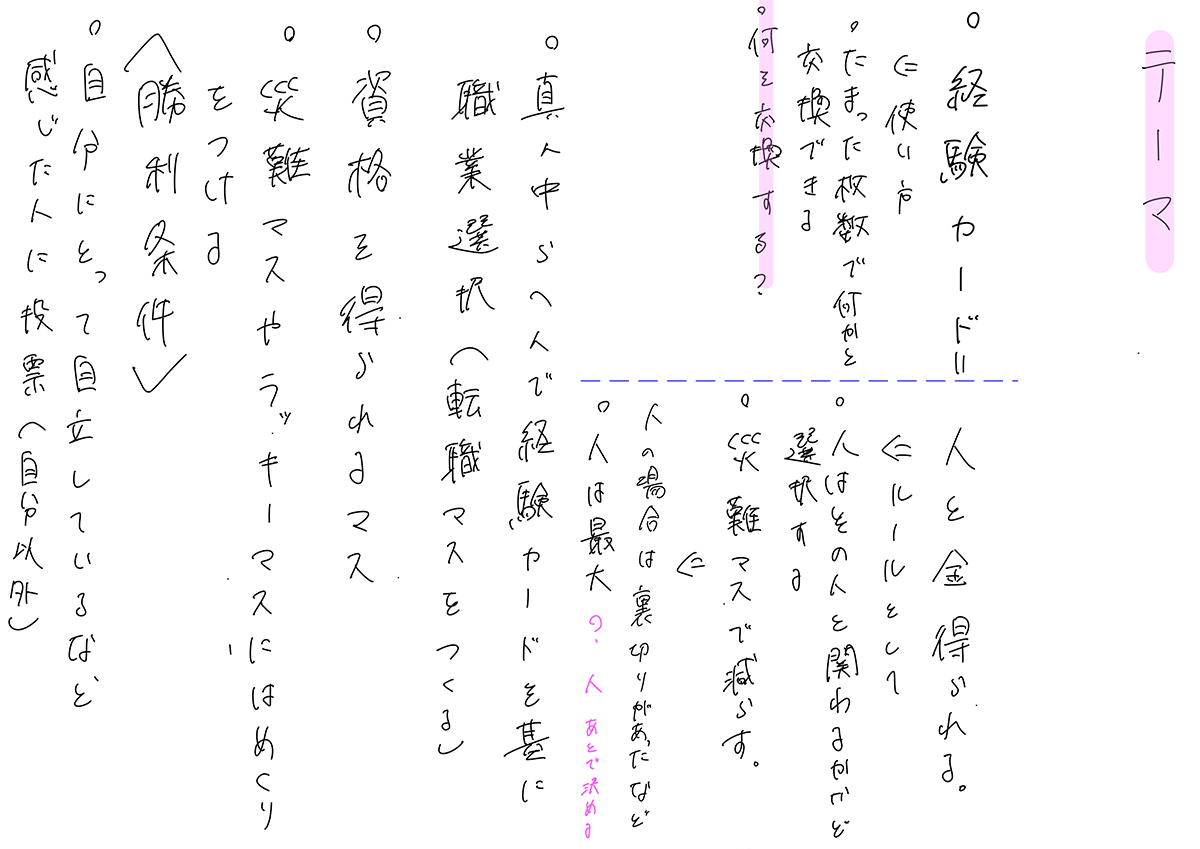 テーマ
。経験カード=
⇐使い方
。たまった枚数で何かと
交換できる
。何を交換する?
人と金得られる。
⇐ルールとして
。人はその人と関わるかどうか
選択する
。災難マスで減らす。
⇐
人の場合は裏切りがあったなど
。人は最大?人 あとで決める
。真人中らへんで経験カードを基に
職業選択(転職マスをつくる)
。資格を得られるマス
。災難マスやラッキーマスにはめくり
をつける
<勝利条件>
。自分にとって自立しているなど
感じた人に投票(自分以外)